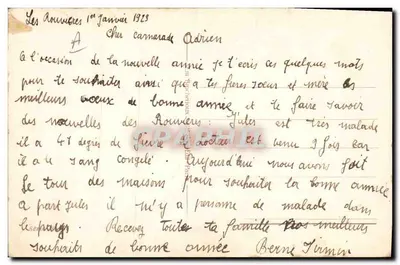 Les Rouvières 1er Janvier 1923
Cher camarade Adrien
A l'ocasion de la nouvelle année je t'écris ces quelques mots
pour te souhaiter ainsi qua tes freres sœur et mère les
meilleurs vœux de bonne année et te faire savoir
des nouvelles des Rouvière Jules est très malade
il a 41 degrés de fievre le docteur est venu 3 fois car
il a u sang congelé. Aujourd'hui nous avons fait
le tour des maisons pour souhaiter la bonne année
a part Jules il n'y a persone de malade dans
Recevez toute ta famille nos meilleurs
souhaits de bonne année Berne Firmin